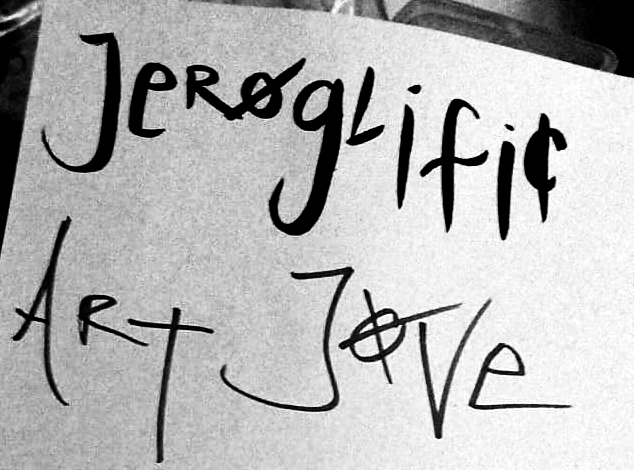 JeRøgLific
ART JøVe